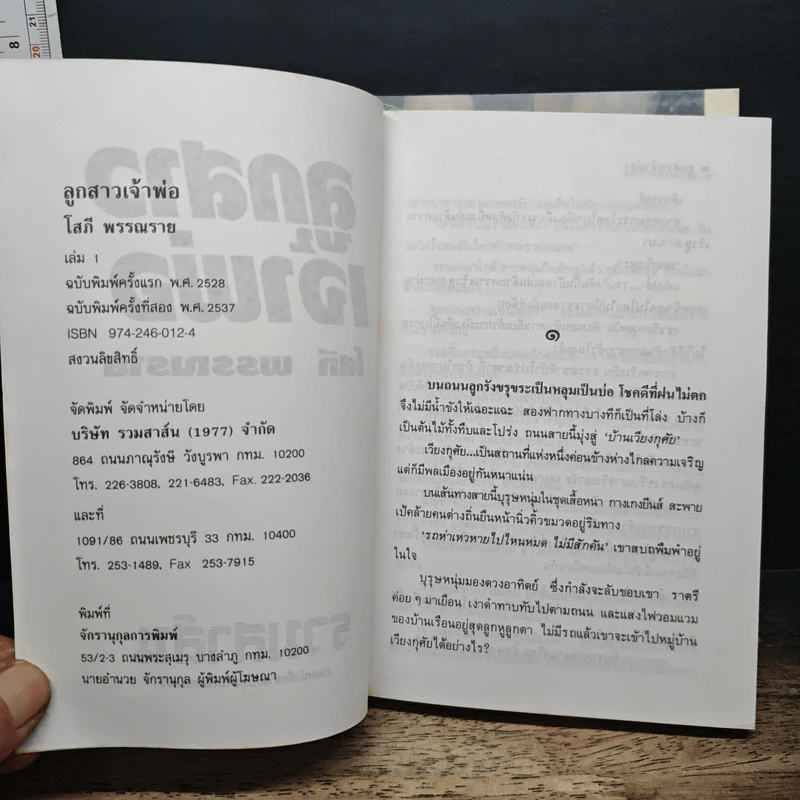 8
21
20
ลูกสาวเจ้าพ่อ
โสภี พรรณราย
เล่ม 1
ฉบับพิมพ์ครั้งแรก พ.ศ. 2528
ฉบับพิมพ์ครั้งที่สอง พ.ศ. 2537
ISBN 974-246-012-4
สงวนลิขสิทธิ์
จัดพิมพ์ จัดจำหน่ายโดย
บริษัท รวมสาส์น (1977) จำกัด
864 ถนนภาณุรังษี วังบูรพา กทม. 10200
โทร. 226-3808, 221-6483, Fax. 222-2036
และที่
1091/86 ถนนเพชรบุรี 33 กทม. 10400
โทร. 253-1489, Fax 253-7915
พิมพ์ที่
จักรานุกูลการพิมพ์
53/2-3 ถนนพระสุเมรุ บางลำภู กทม. 10200
นายอำนวย จักรานุกูล ผู้พิมพ์ผู้โฆษณา
๑
บนถนนลูกรังขรุขระเป็นหลุมเป็นบ่อ โชคดีที่ฝนไม่ตก
จึงไม่มีน้ำขังให้เฉอะแฉะ สองฟากทางบางทีก็เป็นที่โล่ง บ้างก็
เป็นต้นไม้ทั้งทึบและโปร่ง ถนนสายนี้มุ่งสู่ 'บ้านเวียงกุศัย'
เวียงกุศัย...เป็นสถานที่แห่งหนึ่งค่อนข้างห่างไกลความเจริญ
แต่ก็มีพลเมืองอยู่กันหนาแน่น
บนเส้นทางสายนี้บุรุษหนุ่มในชุดเสื้อหนา กางเกงยีนส์ สะพาย
เป้คล้ายคนต่างถิ่นยืนหน้านิ่วคิ้วขมวดอยู่ริมทาง
'รถห่าเหวหายไปไหนหมด ไม่มีสักคัน' เขาสบถพึมพำอยู่
ในใจ
บุรุษหนุ่มมองดวงอาทิตย์ ซึ่งกำลังจะลับขอบเขา ราตรี
ค่อย ๆ มาเยือน เงาดำทาบทับไปตามถนน และแสงไฟวอมแวม
ของบ้านเรือนอยู่สุดลูกหูลูกตา ไม่มีรถแล้วเขาจะเข้าไปหมู่บ้าน
เวียงกุศัยได้อย่างไร?